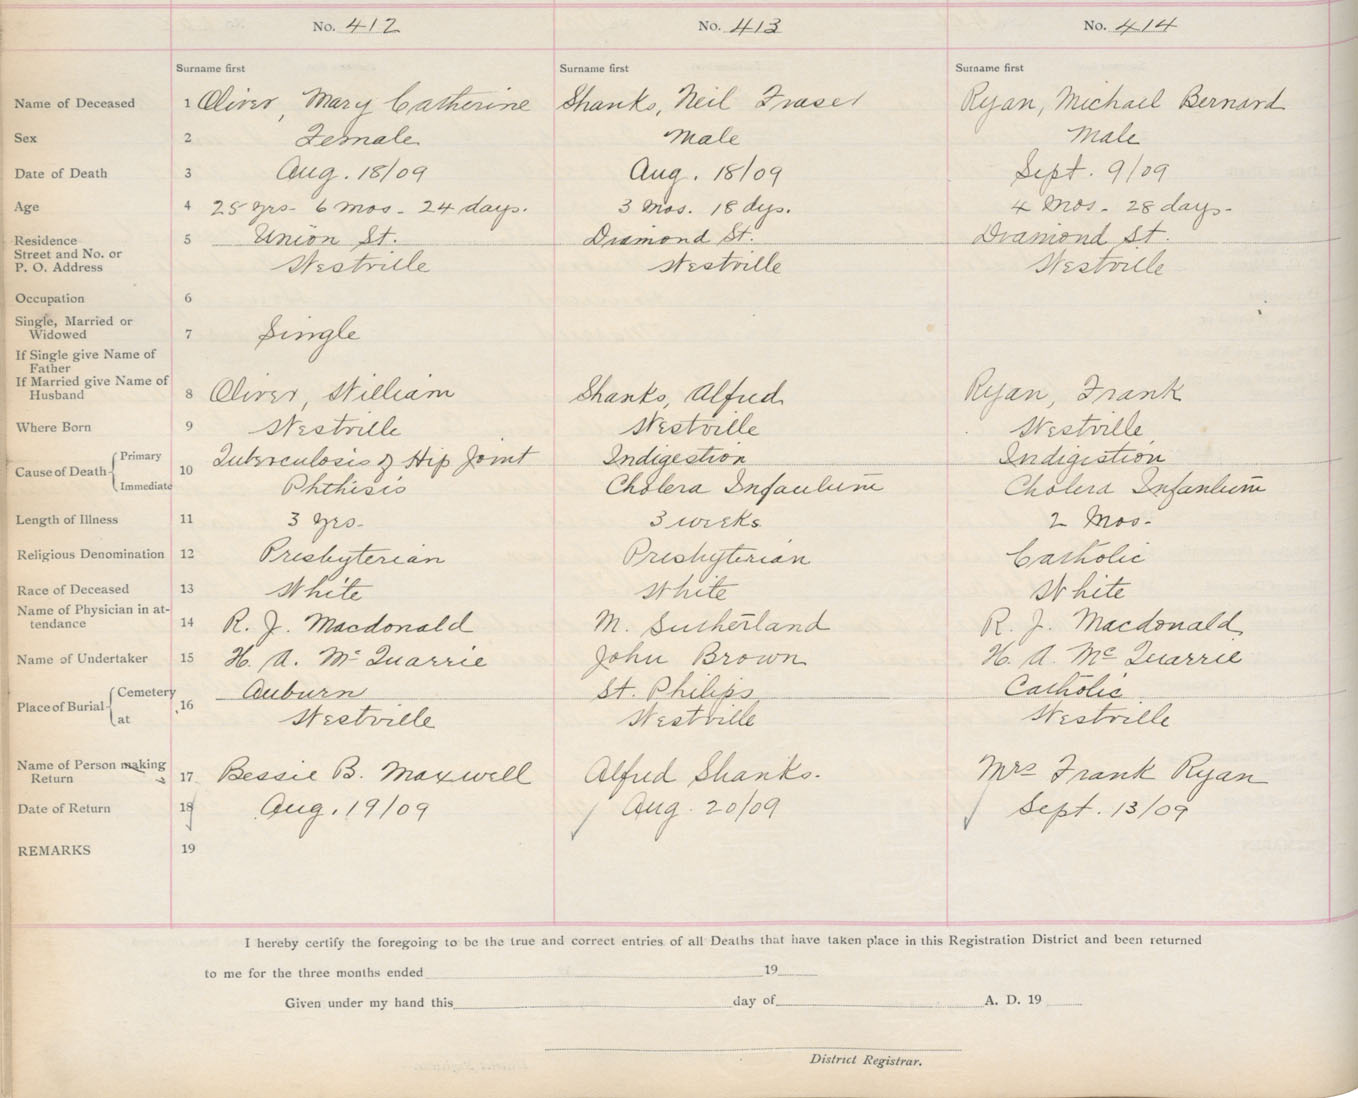 No. 412 No. 413 No. 414
Surname first Surname first Surname first
Name of Deceased 1 Oliver, Mary Catherine Shanks, Neil Fraser Ryan, Michael Bernard
Sex 2 Female Male Male
Date of Death 3 Aug. 18/09 Aug. 18/09 Sept. 9/09
Age 4 25 yrs- 6 mos- 24 days. 3 Mos. 18 dys. 4 Mos- 28 days-
Residence 5 Union St. Diamond St. Diamond St.
Street and No. or
P. O. Address Westville Westville Westville
Occupation 6
Single, Married or
Widowed 7 Single
If Single give Name of
Father
If Married give Name of
Husband 8 Oliver, William Shanks, Alfred Ryan, Frank
Where Born 9 Westville Westville Westville
Cause of Death Primary 10 Tuberculosis of Hip Joint Indigestion Indigestion
Immediate Phthisis Cholera Infantum Cholera Infantum
Length of Illness 11 3 yrs- 3 weeks 2 Mos-
Religious Denomination 12 Presbyterian Presbyterian Catholic
Race of Deceased 13 White White White
Name of Physician in at-
tendance 14 R. J. Macdonald M. Sutherland R. J. Macdonald
Name of Undertaker 15 H. A. McQuarrie John Brown H. A. McQuarrie
Place of Burial Cemetery 16 Auburn St. Philips Catholic
at Westville Westville Westville
Name of Person making
Return 17 Bessie B. Maxwell Alfred Shanks. Mrs Frank Ryan
Date of Return 18 Aug. 19/09 Aug. 20/09 Sept. 13/09
REMARKS 19
I hereby certify the foregoing to be the true and correct entries of all Deaths that have taken place in this Registration District and been returned
to me for the three months ended 19
Given under my hand this day of A. D. 19
District Registrar.